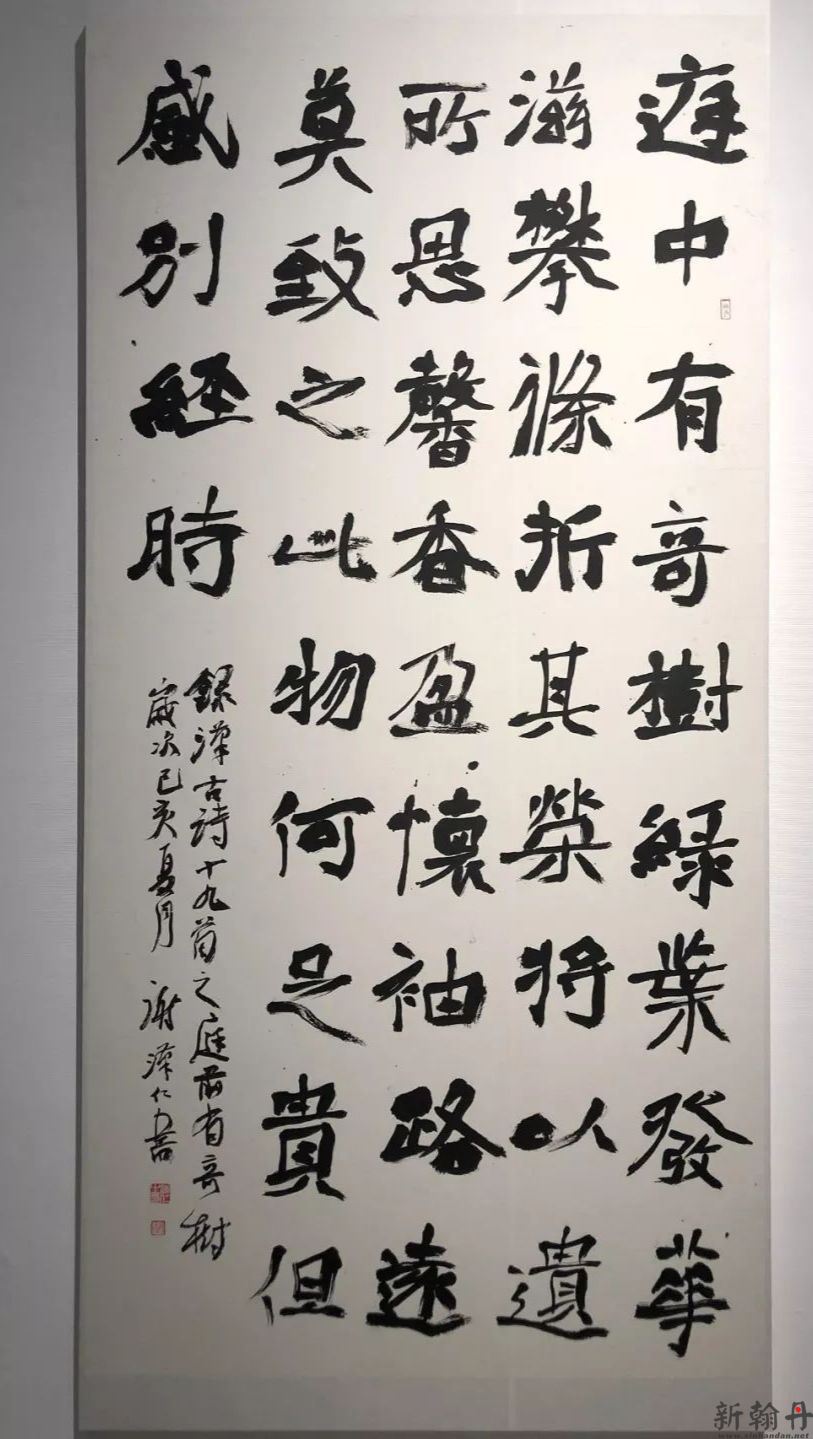 庭中有奇樹綠葉發華
滋攀條折其榮將以遺
所思馨香盈懷袖路遠
莫致之此物何足貴但
感別經時
錄漢古詩十九首之庭前有奇樹
歲次己亥夏月 謝
新翰丹
www.xinhandan.net